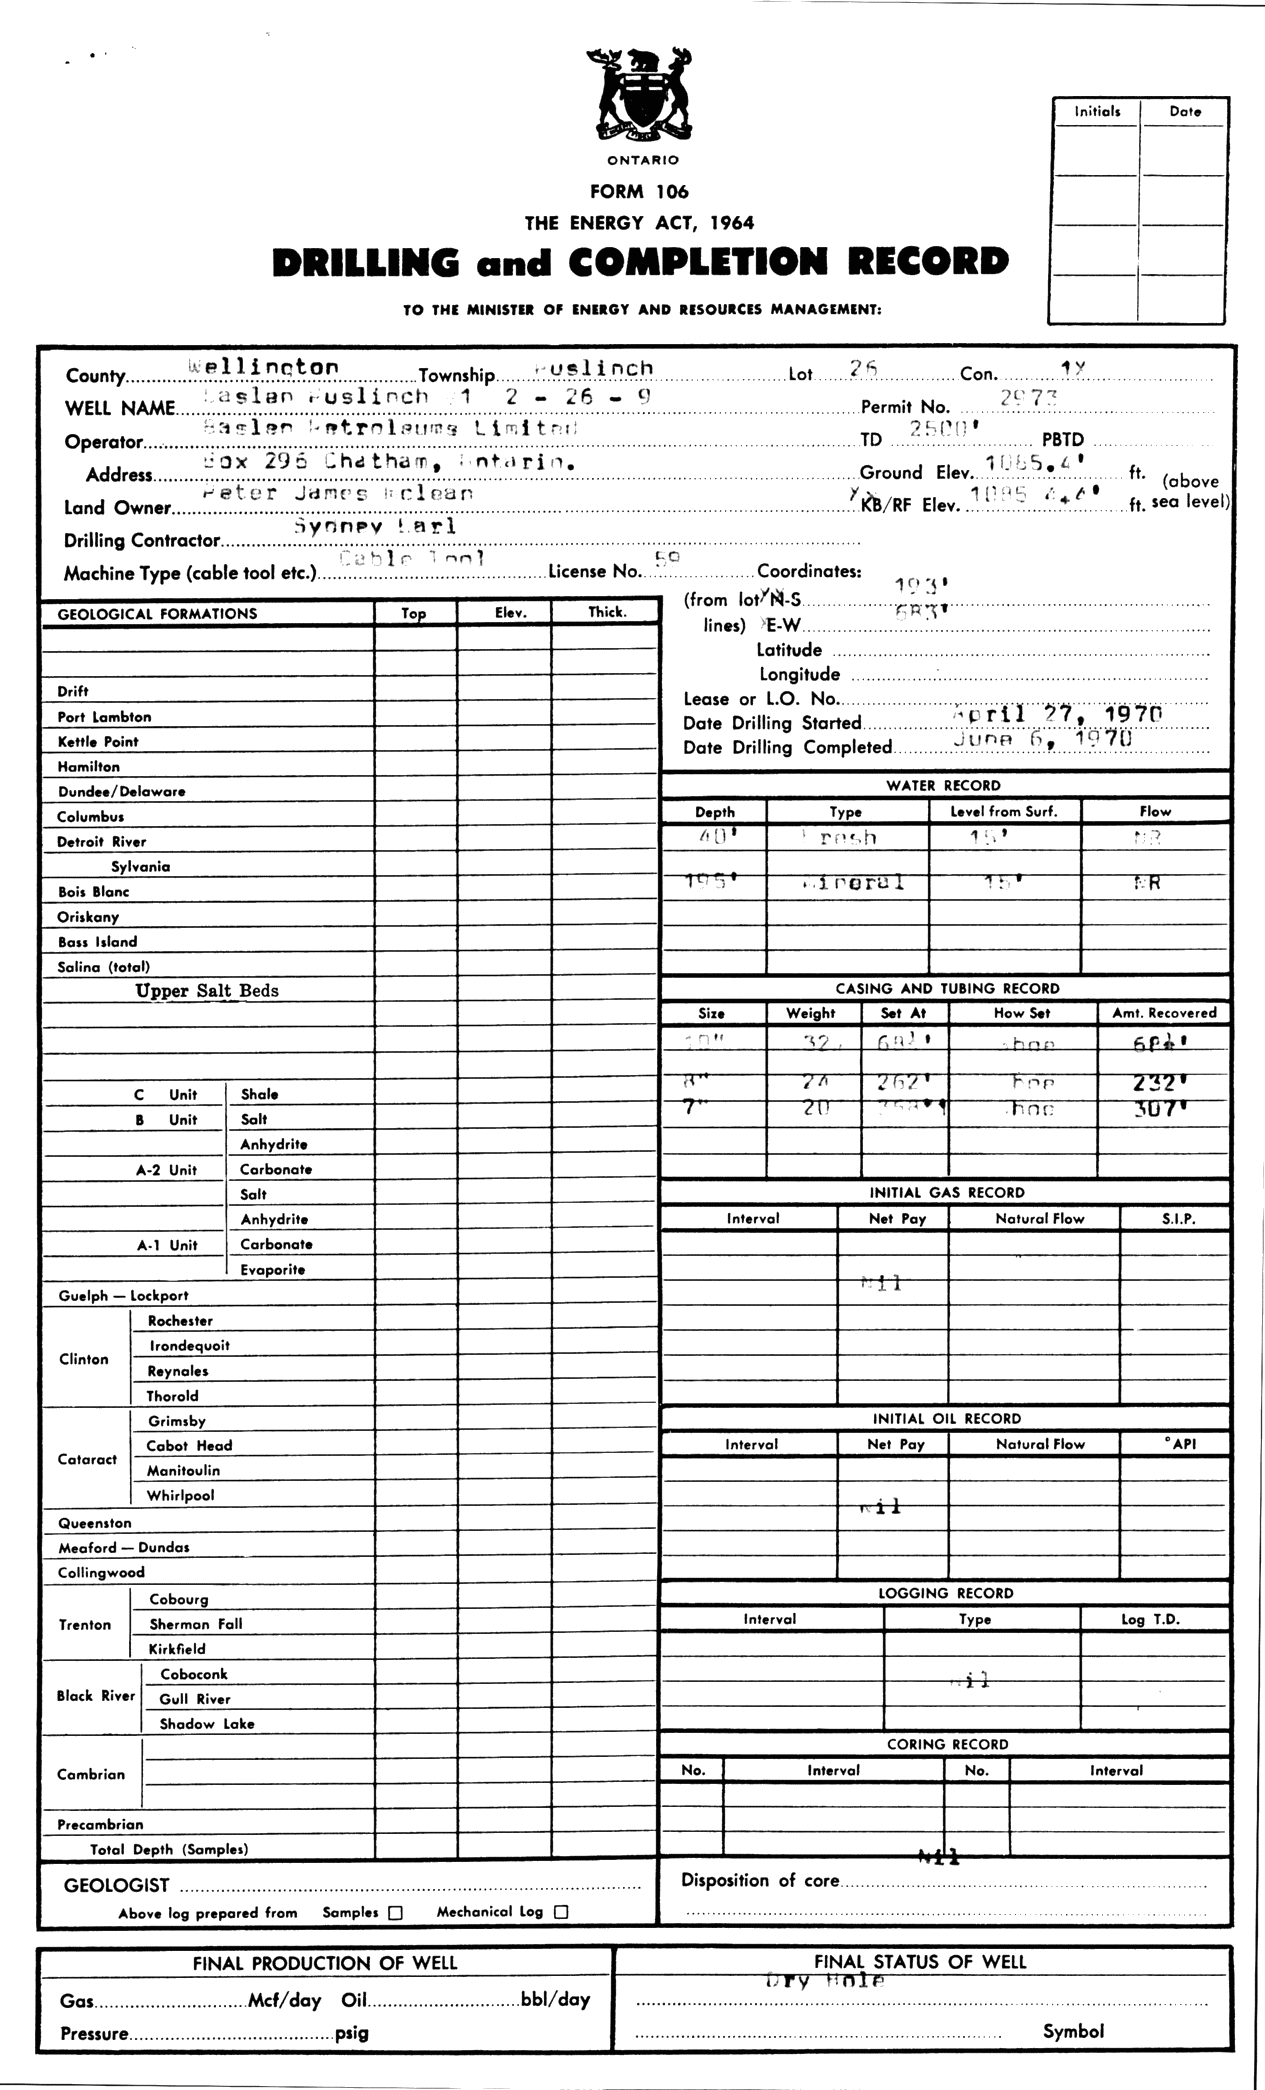 ONTARIO
FORM 106
THE ENERGY ACT, 1964
DRILLING and COMPLETION RECORD
TO THE MINISTER OF ENERGY AND RESOURCES MANAGEMENT:
Initials Date
County Wellington Township Puslinch Lot 26 Con. 1X
WELL NAME Puslinch 1 2 - 26 - 9 Permit No. 2973
Operator Petroleums Limited TD 2500' PBTD
Address Box 296 Chatham, Ontario. Ground Elev. 1085.4' ft. (above
Land Owner Peter James Mclean KB/RF Elev. 1085 ft. sea level)
Drilling Contractor Sydney Earl
Machine Type (cable tool etc.) Cable Tool License No. 59 Coordinates:
(from lot N-S 193'
lines) E-W 683'
Latitude
Longitude
Lease or L.O. No.
Date Drilling Started April 27, 1970
Date Drilling Completed June 6, 1970
GEOLOGICAL FORMATIONS Top Elev. Thick.
Drift
Port Lambton
Kettle Point
Hamilton
Dundee/Delaware
Columbus
Detroit River
Sylvania
Bois Blanc
Oriskany
Bass Island
Salina (total)
Upper Salt Beds
C Unit Shale
B Unit Salt
Anhydrite
A-2 Unit Carbonate
Salt
Anhydrite
A-1 Unit Carbonate
Evaporite
Guelph — Lockport
Clinton
Rochester
Irondequoit
Reynales
Thorold
Cataract
Grimsby
Cabot Head
Manitoulin
Whirlpool
Queenston
Meaford — Dundas
Collingwood
Trenton
Cobourg
Sherman Fall
Kirkfield
Black River
Coboconk
Gull River
Shadow Lake
Cambrian
Precambrian
Total Depth (Samples)
GEOLOGIST
Above log prepared from Samples Mechanical Log
WATER RECORD
Depth Type Level from Surf. Flow
40' Fresh 15' NR
195' Mineral 15' NR
CASING AND TUBING RECORD
Size Weight Set At How Set Amt. Recovered
10" 32 Shoe
8" 24 262' Shoe 232'
7" 20 Shoe 307'
INITIAL GAS RECORD
Interval Net Pay Natural Flow S.I.P.
Nil
INITIAL OIL RECORD
Interval Net Pay Natural Flow °API
Nil
LOGGING RECORD
Interval Type Log T.D.
Nil
CORING RECORD
No. Interval No. Interval
Nil
Disposition of core
FINAL PRODUCTION OF WELL
Gas Mcf/day Oil bbl/day
Pressure psig
FINAL STATUS OF WELL
Dry Hole
Symbol